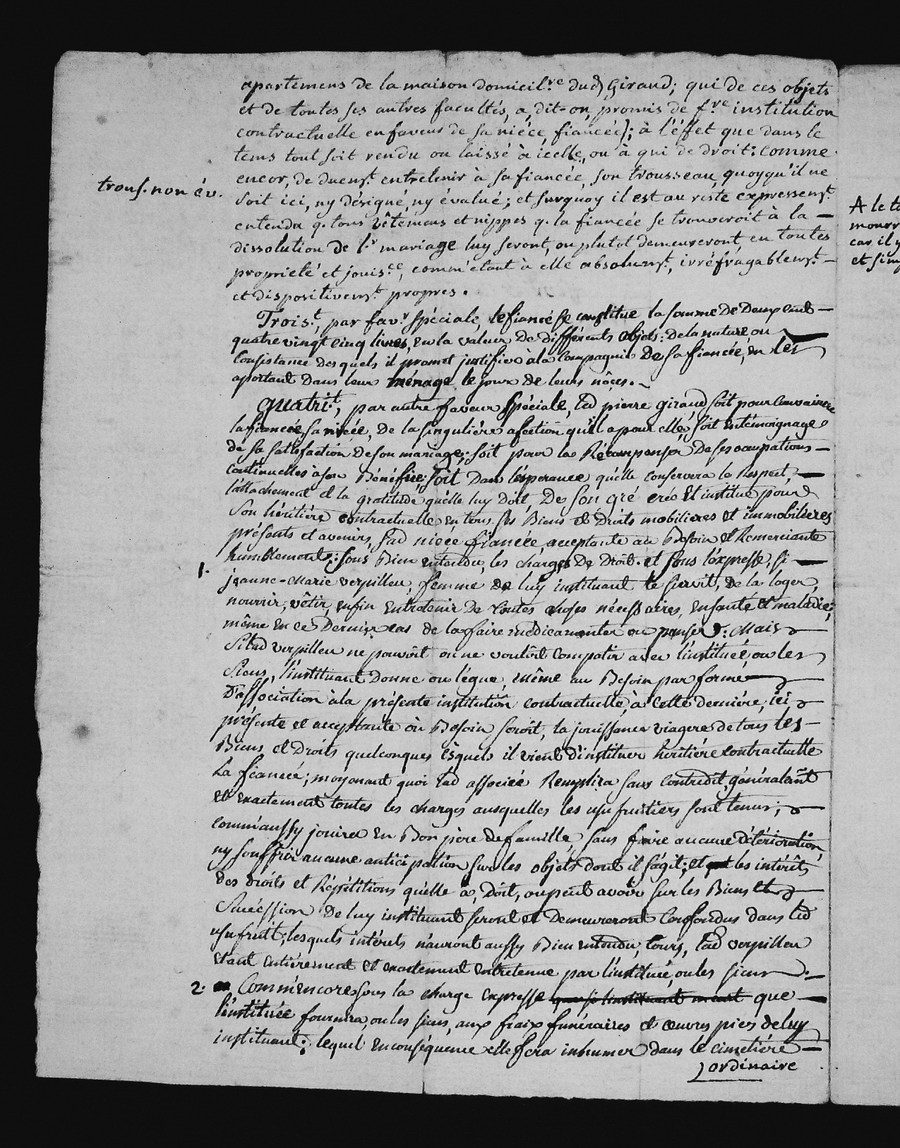 apartemens de la maison domicil.re dud Giraud; qui de ces objets
et de toutes ses autres facultés, a, dit-on, promis de f.re institution
contractuelle en faveur de sa niéce fiancée]; à l'éffet que dans le
tems tout soit rendu ou laissé à icelle, ou à qui de droit: comme
encor, de duem.t entretenir à sa fiancée, son trousseau, quoyqu'il ne
trous. non év.
soit ici, ny désigné, ny évalué; et surquoy il est au reste expressem.t
entendu q. tous vêtemens et nippes q. la fiancée se trouveroit à la
dissolution de l.r mariage luy seront, ou plutot demeureront, en toutes
propriété et jouis.ce, comm'étant à elle absolum.t, irréfragablem.t
et dispositivem.t propres.
Trois.t, par fav.r spéciale, le fiancé se constitue la somme de Deux cent
quatre vingt cinq livres, en la valeur de différents objets; de la nature ou
Consistance desquels il promet justifier à la Compagnie de sa fiancée, en les
aportant dans leur ménage le jour de leurs nôces.
Quatri.t, par autre faveur spéciale, led pierre Giraud soit pour Convaincre
la fiancée sa niéce, de la singuliére afection qu'il a pour elle; soit en témoignage
de sa satisfaction de son mariage; soit pour la Récompenser De ses ocupations
continuelles à son Bénéfice; soit Dans l'esperance qu'elle conservera le Respect,
l'attachement et la gratitude qu'elle luy Doit, De son gré crée et institue pour
son héritiére contractuelle en tous ses Biens et Droits mobilieres et immobilieres
présents et avenirs, lad niéce fiancée acceptante au Besoin et Remerciante
humblement; sous Bien entendu, les charges de Droit. et sous l'expresse, si
1.
jeanne-Marie verpilleu, femme de luy instituant le survit, de la loger,
nourrir, vêtir, enfin entretenir de toutes choses nécessaires, en santé et maladie;
même en ce Dernier cas de la faire médicamenter ou penser: Mais
si lad verpilleu ne pouvoit ou ne vouloit compatir avec l'instituée, ou les
siens, l'instituant Donne ou légue même au Besoin par forme
D'association à la présente institution contractuelle, à cette derniere, ici
présente et acceptante où Besoin seroit, la jouissance viagere de tous les
Biens et Droits quelconques ésquels il vient d'instituer héritiére contractuelle
la fiancée; moyenant quoi lad associée Remplira sans contredit, généralem.t
et exactement toutes les charges ausquelles les usufruitiers sont tenus;
comm'aussy jouira en Bon pére de famille, sans faire aucune détérioration,
ny souffrir aucune anticipation sur les objets dont il s'agit; et les intérêts
des Droits et Répétitions qu'elle a, Doit, ou peut avoir sur les Biens et
Succéssion de luy instituant seront et Demeureront Confondus dans led
usufruit; lesquels intérêts n'auront aussy Bien entendu, cours, lad verpilleu
étant entiérement et exactement entretenue par l'instituée, ou les siens.
2. Comm'encore sous la charge expresse que si l'instituant meurt que
l'instituée fournira, ou les siens, aux fraix funéraires et œuvres pies de luy
instituant; lequel en conséquence elle fera inhumer dans le cimetiére
ordinaire
A le t
mourr
car il y
et sim